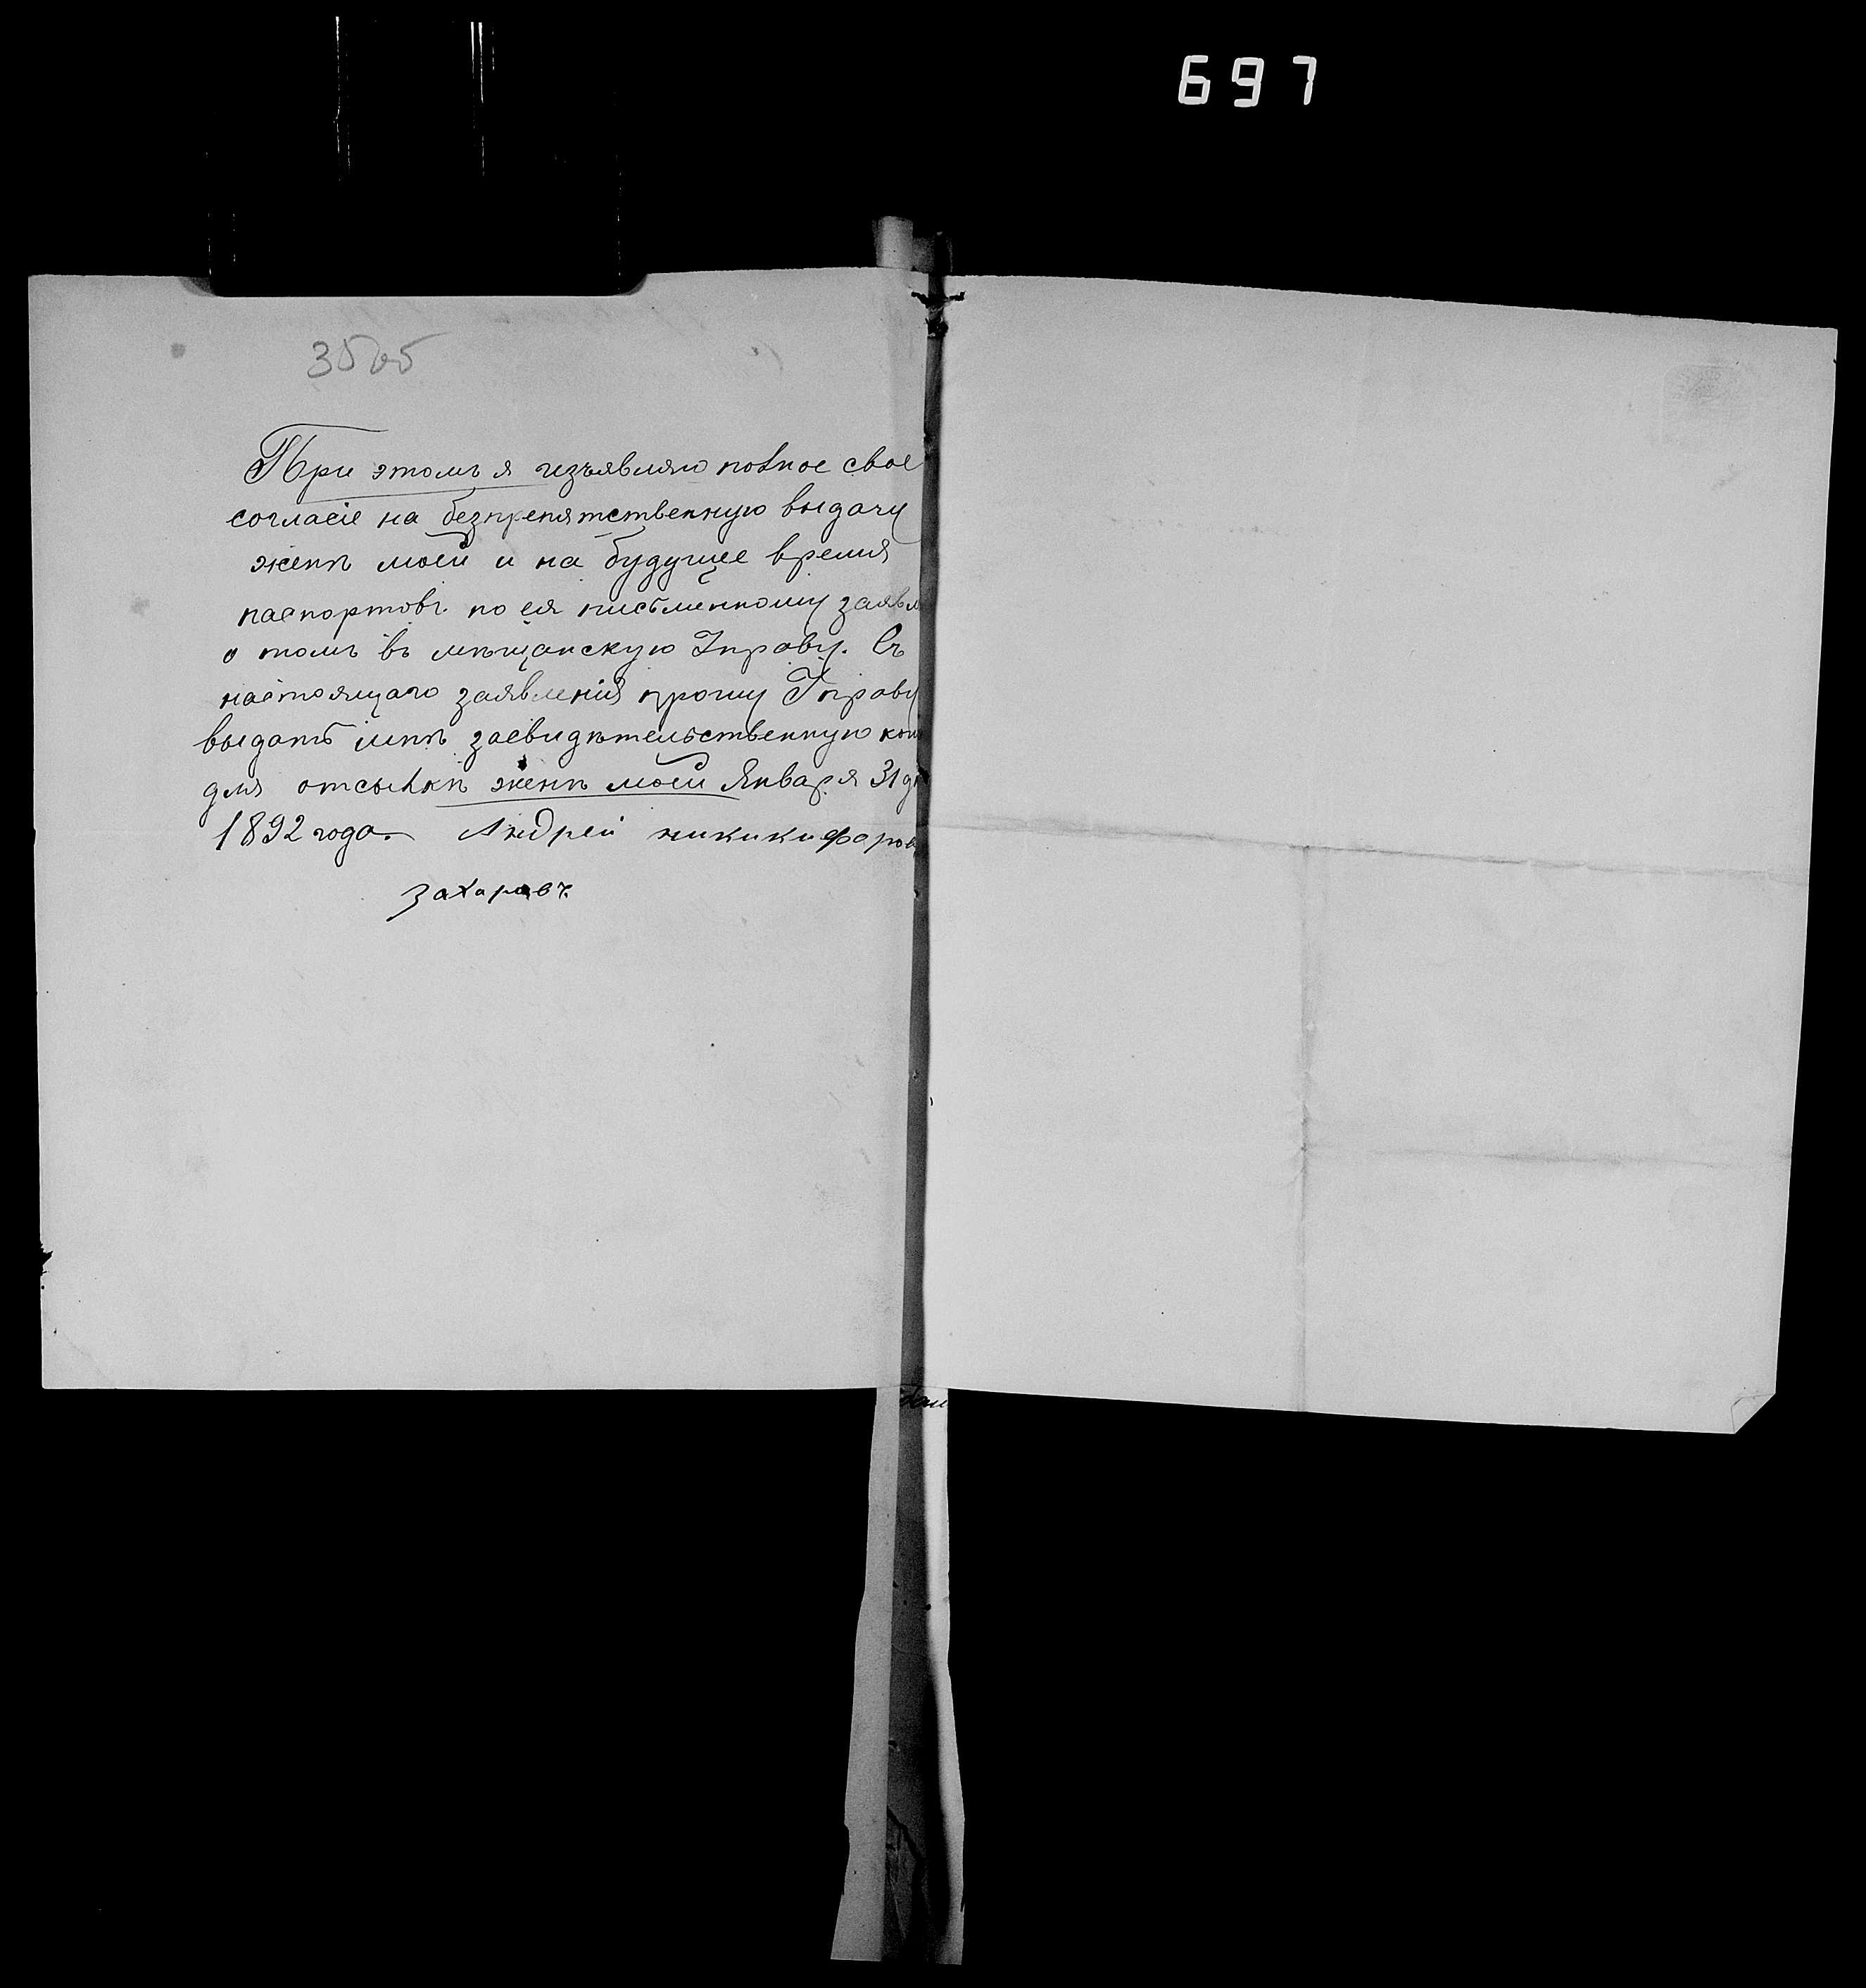 697
3505
При этомъ я изъявляю полное свое
согласіе на безпрепятственную выдачу
женѣ моей и на будущее время
паспортовъ по ея письменному заявл
о томъ въ мѣщанскую Управу. Съ
настоящаго заявленія прошу Управу
выдать мнѣ засвидѣтельственную коп
для отсылкѣ женѣ моей Января 31 д
1892 года. Андрей никикифоров
захаровъ